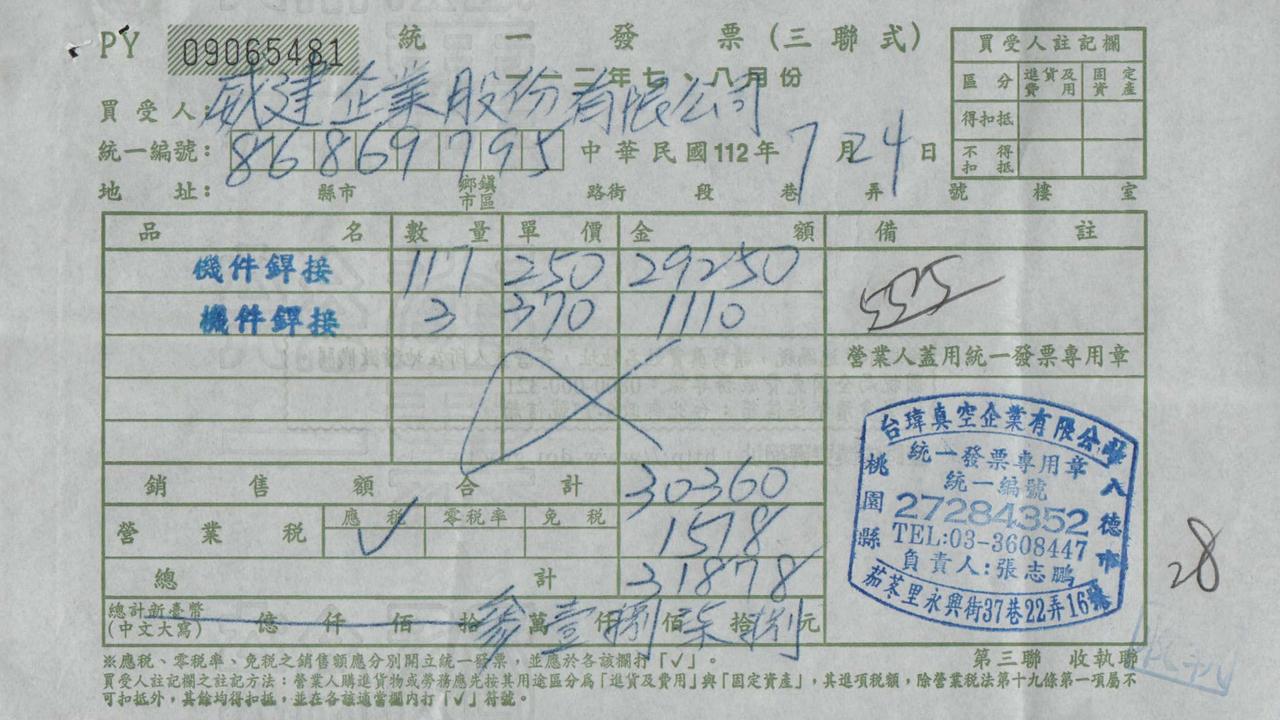 PY 09065481 統一發票(三聯式)
一一二年七、八月份
買受人:威建企業股份有限公司
統一編號: 86869795 中華民國112年7月24日
地址: 縣市 鄉鎮市區 路街 段 巷 弄 號 樓 室
買受人註記欄
區分 進貨及費用 固定資產
得扣抵
不得扣抵
品名 數量 單價 金額 備註
機件銲接 117 250 29250
機件銲接 3 370 1110
5525
營業人蓋用統一發票專用章
銷售額合計 30360
營業稅 應稅 ✓ 零稅率 免稅 1518
總計 31878
總計新臺幣(中文大寫) 億 仟 佰 拾 參萬 壹仟 捌佰 柒拾 捌元
台瑋真空企業有限公司
統一發票專用章
統一編號
27284352
TEL:03-3608447
負責人:張志鵬
桃園縣八德市
茄苳里永興街37巷22弄16號
28
※應稅、零稅率、免稅之銷售額應分別開立統一發票,並應於各該欄打「✓」。
第三聯 收執聯
買受人註記欄之註記方法:營業人購進貨物或勞務應先按其用途區分為「進貨及費用」與「固定資產」,其進項稅額,除營業稅法第十九條第一項屬不
可扣抵外,其餘均得扣抵,並在各該適當欄內打「✓」符號。